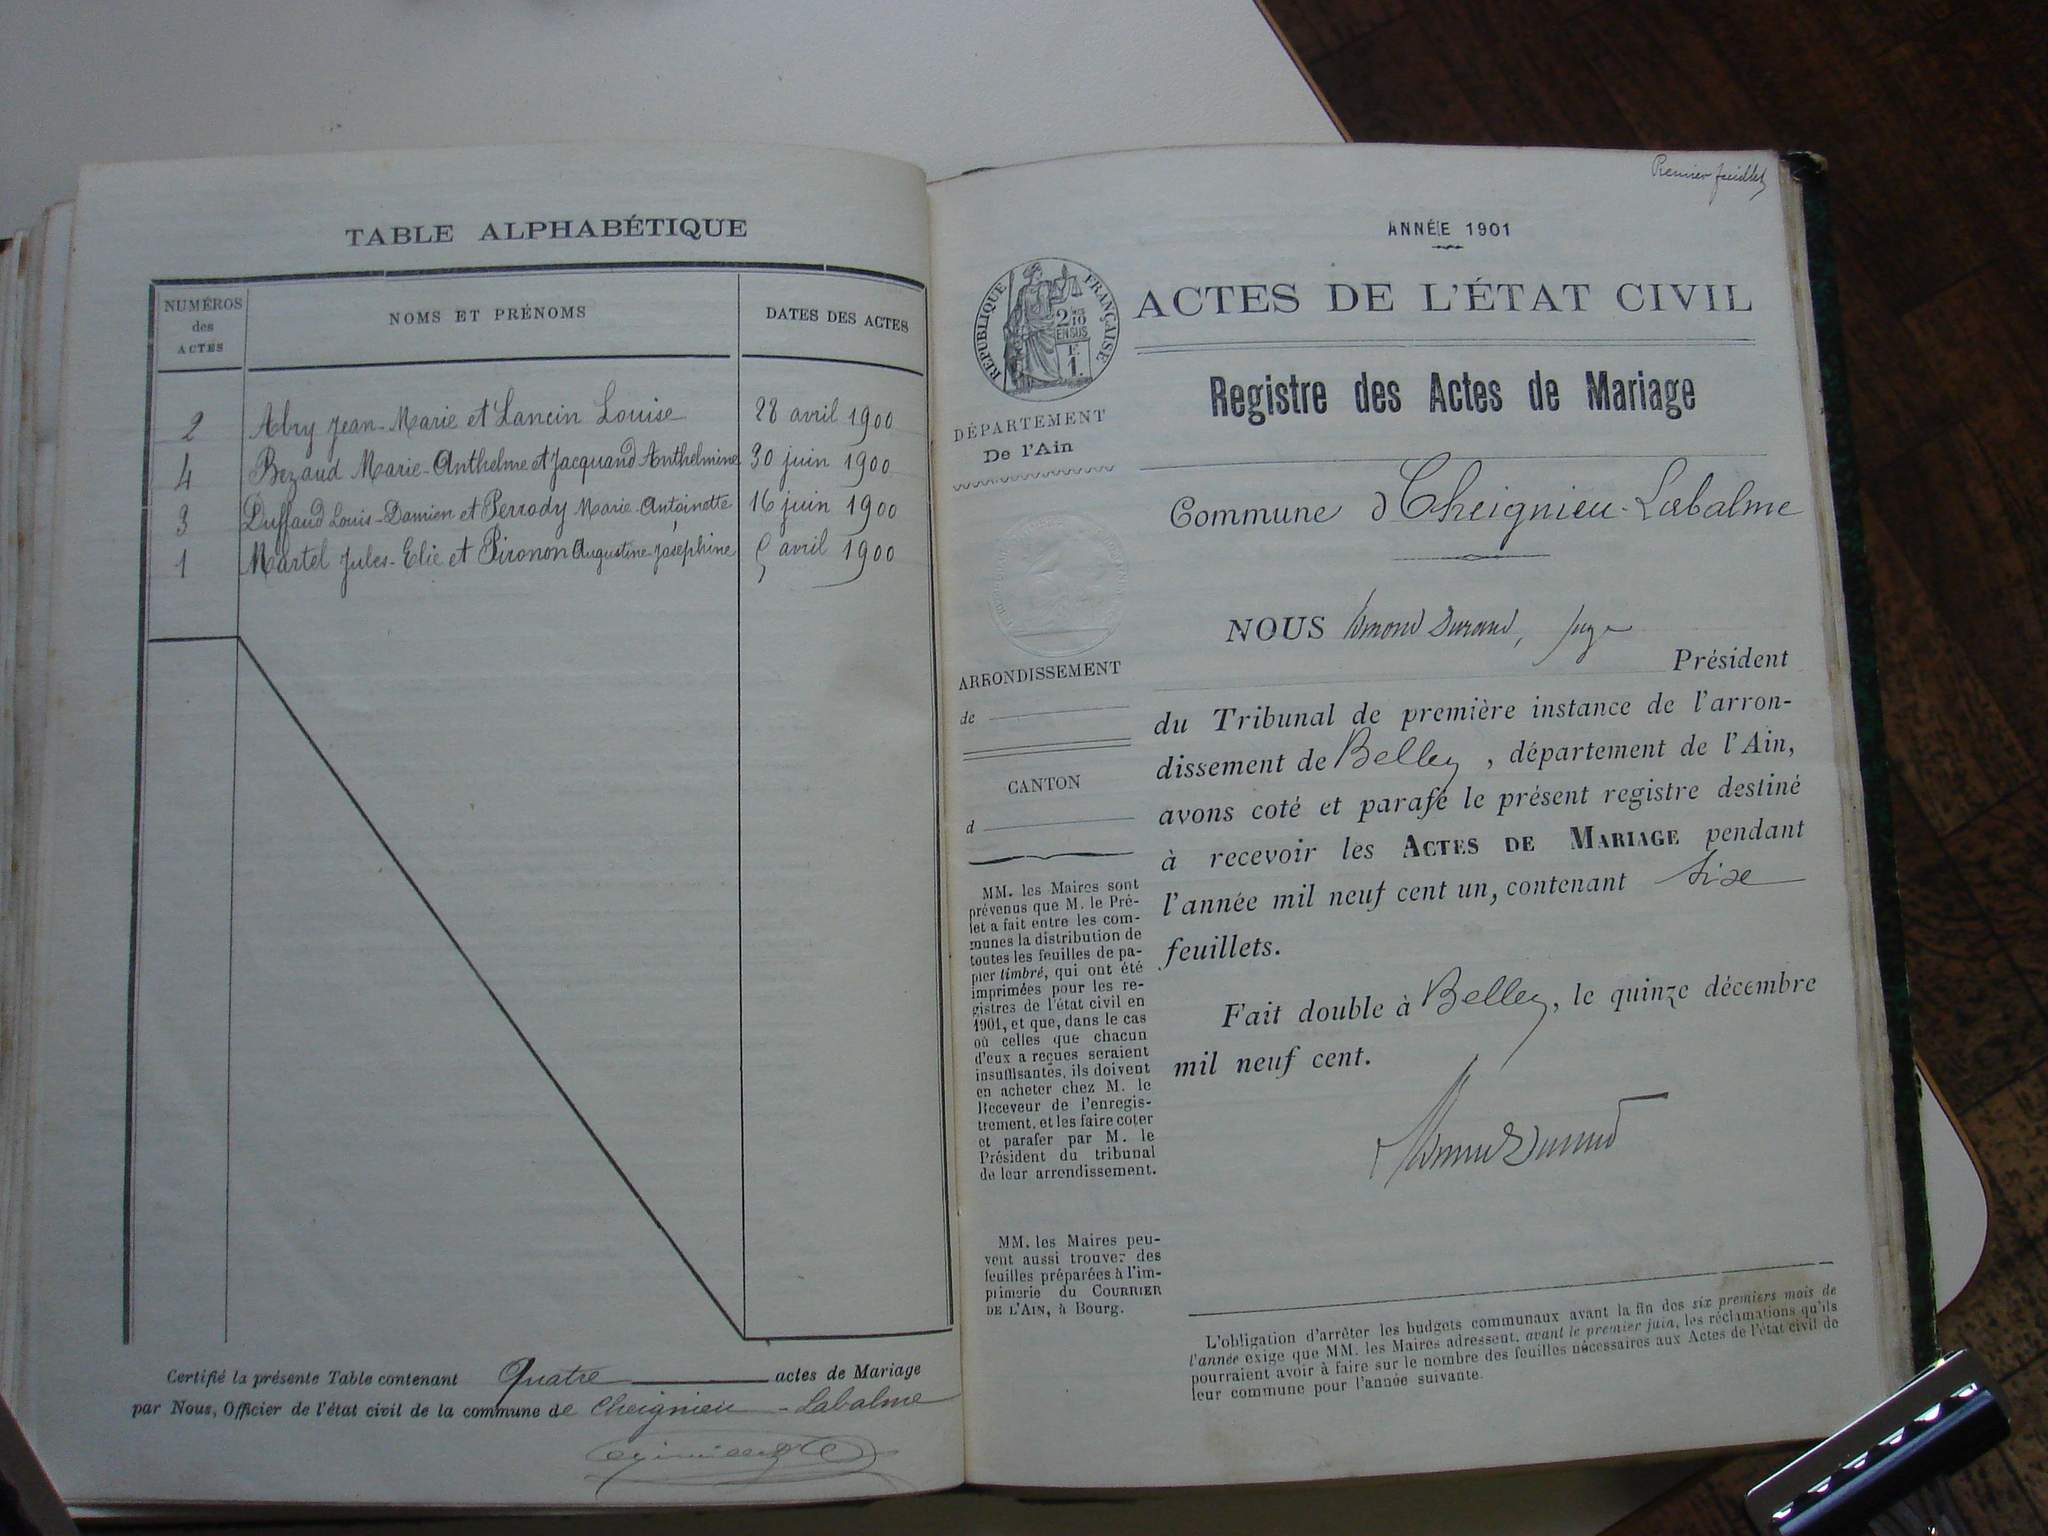 TABLE ALPHABÉTIQUE
NUMÉROS des ACTES
NOMS ET PRÉNOMS
DATES DES ACTES
2 Abry Jean-Marie et Lancin Louise 28 avril 1900
4 Bezaud Marie-Anthelme et Jacquand Anthelmine 30 juin 1900
3 Duffaud Louis-Damien et Perrody Marie-Antoinette 16 juin 1900
1 Martel Jules-Elie et Pironon Augustine-Joséphine 5 avril 1900
Certifié la présente Table contenant Quatre actes de Mariage
par Nous, Officier de l'état civil de la commune de Cheignieu-Labalme
Premier feuillet
ANNÉE 1901
RÉPUBLIQUE FRANÇAISE
2/10
EN SUS
1
ACTES DE L'ÉTAT CIVIL
Registre des Actes de Mariage
DÉPARTEMENT
De l'Ain
Commune d Cheignieu-Labalme
NOUS Edmond Durand, juge
Président
du Tribunal de première instance de l'arron-
dissement de Belley, département de l'Ain,
avons coté et parafé le présent registre destiné
à recevoir les ACTES DE MARIAGE pendant
l'année mil neuf cent un, contenant Sixe
feuillets.
Fait double à Belley, le quinze décembre
mil neuf cent.
ARRONDISSEMENT
de
CANTON
d
MM. les Maires sont
prévenus que M. le Pré-
fet a fait entre les com-
munes la distribution de
toutes les feuilles de pa-
pier timbré, qui ont été
imprimées pour les re-
gistres de l'état civil en
1901, et que, dans le cas
où celles que chacun
d'eux a reçues seraient
insuffisantes, ils doivent
en acheter chez M. le
Receveur de l'enregis-
trement, et les faire coter
et parafer par M. le
Président du tribunal
de leur arrondissement.
MM. les Maires peu-
vent aussi trouver des
feuilles préparées à l'im-
primerie du COURRIER
DE L'AIN, à Bourg.
L'obligation d'arrêter les budgets communaux avant la fin des six premiers mois de
l'année exige que MM. les Maires adressent, avant le premier juin, les réclamations qu'ils
pourraient avoir à faire sur le nombre des feuilles nécessaires aux Actes de l'état civil de
leur commune pour l'année suivante.